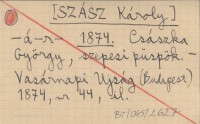 [SZÁSZ Károly]
-á-r- 1874. Császka
György, szepesi püspök. -
Vasárnapi Ujság (Budapest)
1874, nr 44, il.
BI/065/2627